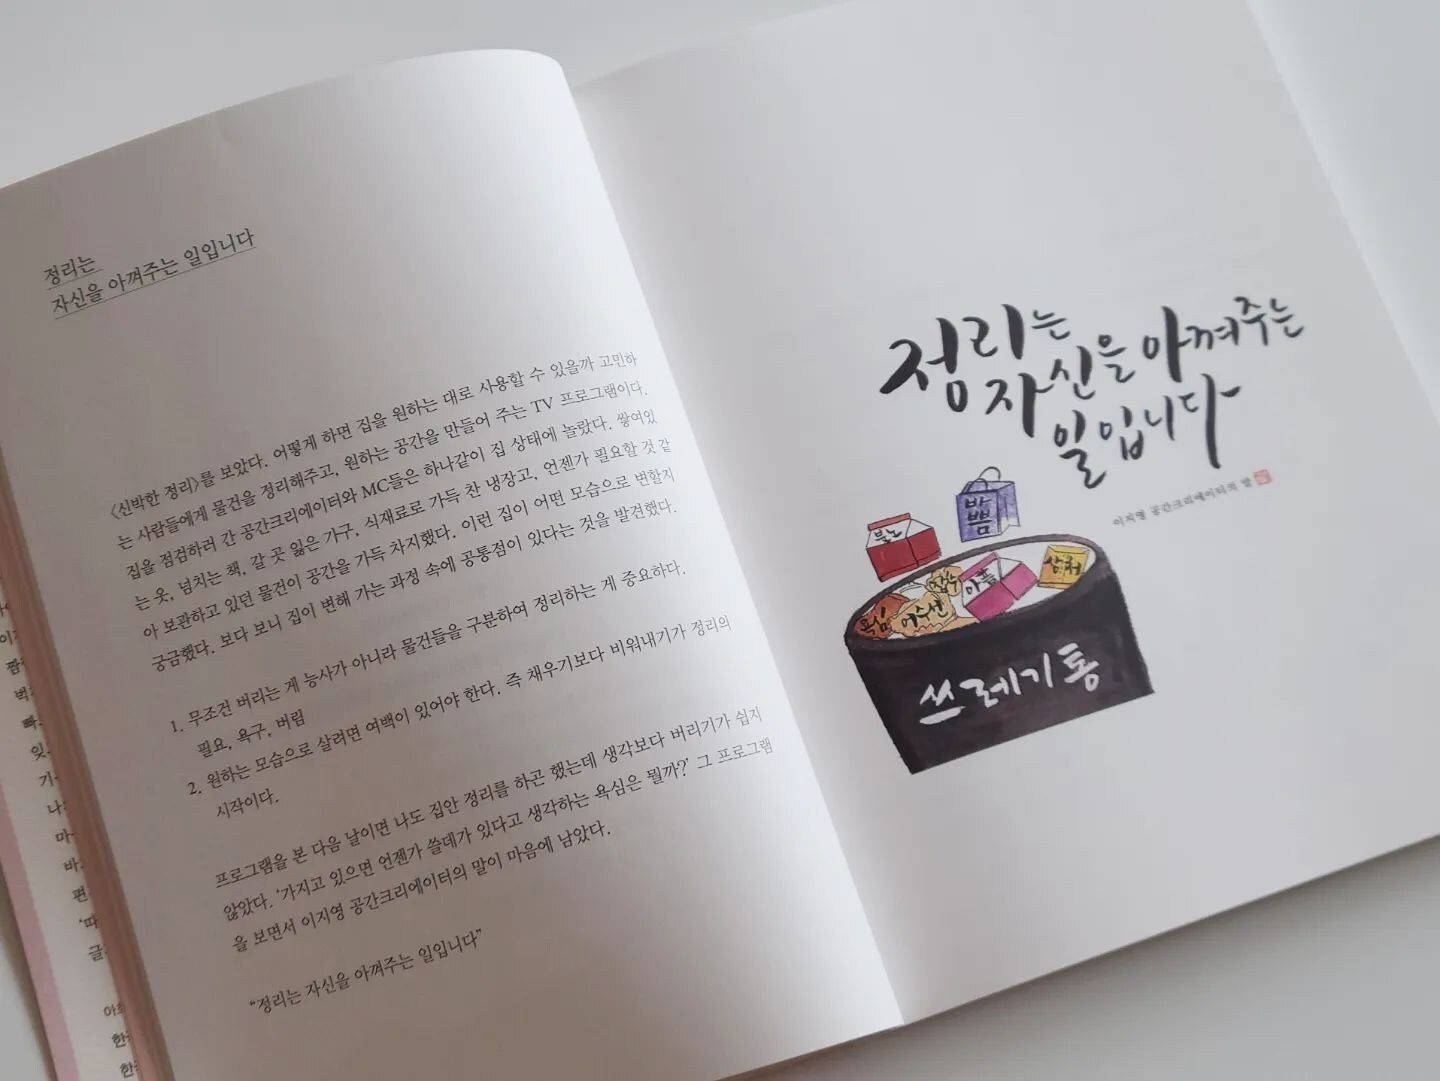 정리는
자신을 아껴주는 일입니다
〈신박한 정리〉를 보았다. 어떻게 하면 집을 원하는 대로 사용할 수 있을까 고민하
는 사람들에게 물건을 정리해주고, 원하는 공간을 만들어 주는 TV 프로그램이다.
집을 점검하러 간 공간크리에이터와 MC들은 하나같이 집 상태에 놀랐다. 쌓여있
는 옷, 넘치는 책, 갈 곳 잃은 가구, 식재료로 가득 찬 냉장고, 언젠가 필요할 것 같
아 보관하고 있던 물건이 공간을 가득 차지했다. 이런 집이 어떤 모습으로 변할지
궁금했다. 보다 보니 집이 변해 가는 과정 속에 공통점이 있다는 것을 발견했다.
1. 무조건 버리는 게 능사가 아니라 물건들을 구분하여 정리하는 게 중요하다.
필요, 욕구, 버림
2. 원하는 모습으로 살려면 여백이 있어야 한다. 즉 채우기보다 비워내기가 정리의
시작이다.
프로그램을 본 다음 날이면 나도 집안 정리를 하곤 했는데 생각보다 버리기가 쉽지
않았다. ‘가지고 있으면 언젠가 쓸데가 있다고 생각하는 욕심은 뭘까?’ 그 프로그램
을 보면서 이지영 공간크리에이터의 말이 마음에 남았다.
“정리는 자신을 아껴주는 일입니다”
정리는
자신을 아껴주는
일입니다
이지영 공간크리에이터의 말
바쁨
분노
상처
아픔
욕심
어수선
쓰레기통